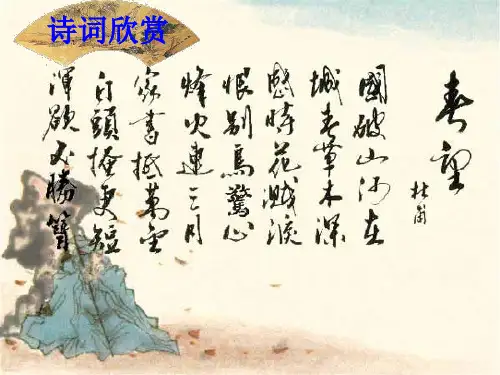 诗词欣赏
春望
杜甫
國破山河在
城春草木深
感時花濺淚
恨别鳥驚心
烽火連三月
家書抵萬金
白頭搔更短
渾欲不勝簪